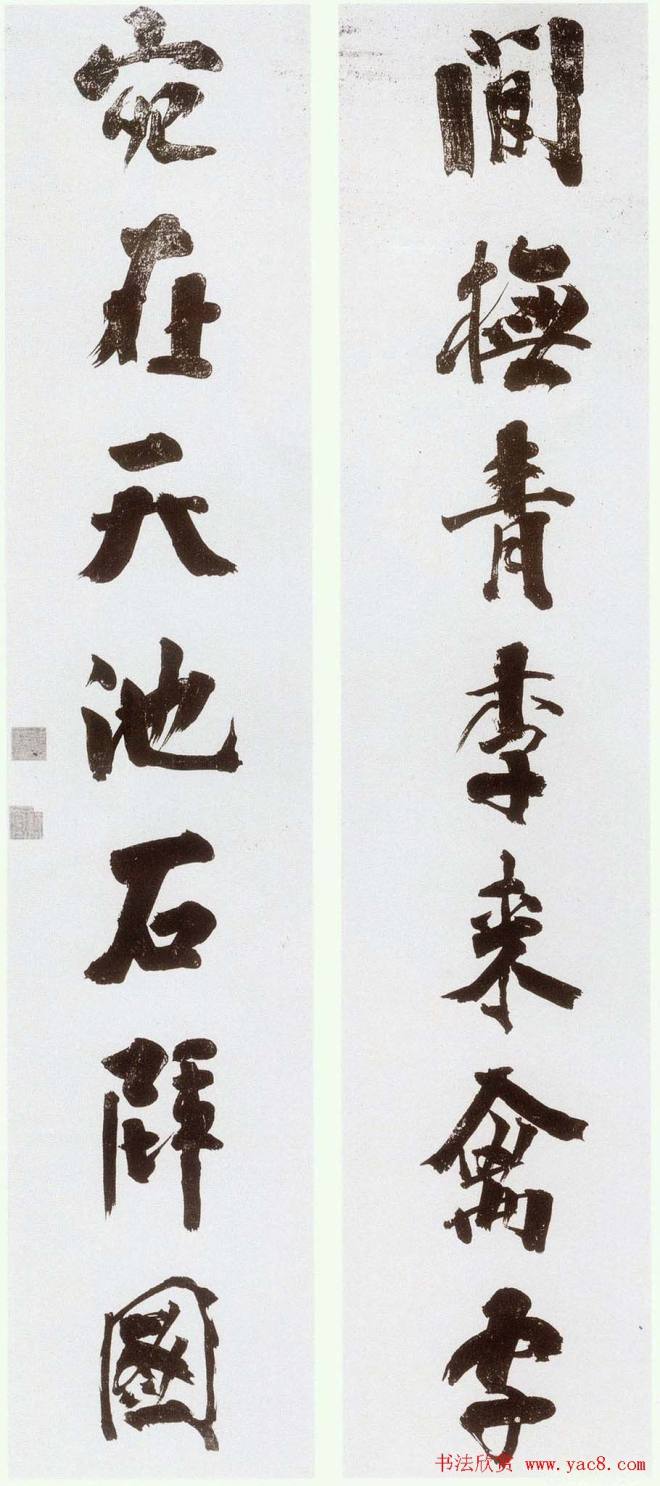 閒撫青李來禽字
宛在天池石辟圖
书法欣赏 www.yac8.com